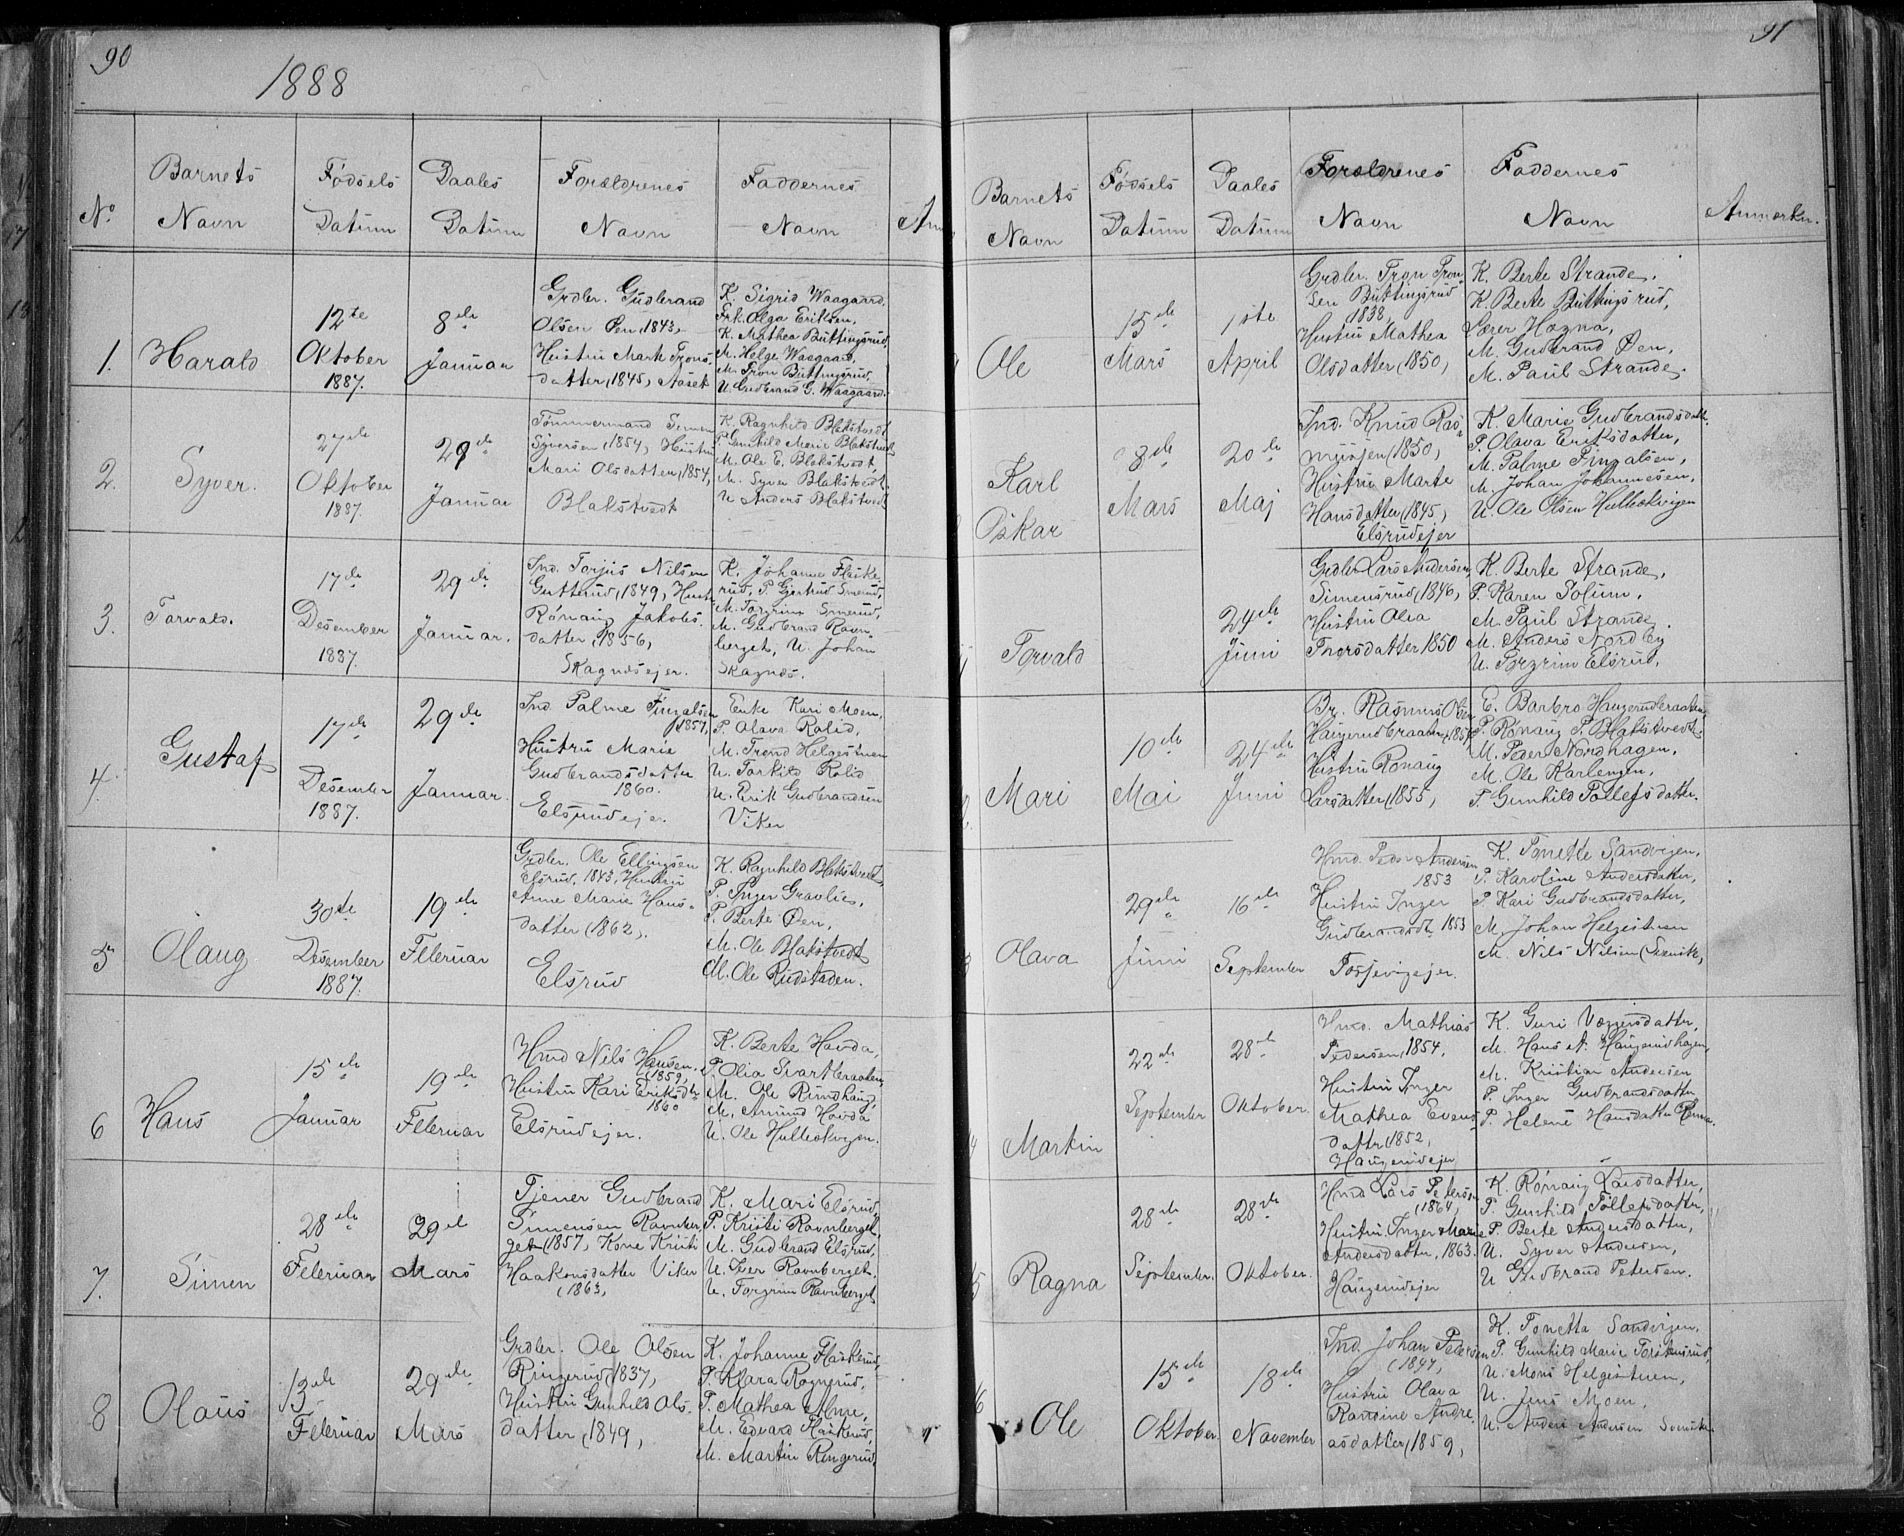 90
1888
No
Barnets
Navn
Fødsels
Datum
Daabs
Datum
Forældrenes
Navn
Faddernes
Navn
Anm
1.
Harald
12te
Oktober
1887.
8de
Januar
Grdbr. Gudbrand
Olsen Øen, 1843,
Hustru Marte Trons-
datter, 1845, Aaset
K. Sigrid Waagaard,
Frk. Olga Eriksen,
K. Mathea Büttingsrud,
M. Helge Waagaard,
M. Tron Büttingsrud,
U. Gudbrand G. Waagaard.
2.
Syver.
27de
Oktober
1887.
29de
Januar
Tømmermand Simen
Syversen, 1854, Hustru
Mari Olsdatter, 1854,
Blakstvedt
K. Ragnhild Blakstvedt,
P. Gunhild Marie Blakstvedt
M. Ole E. Blakstvedt,
M. Syver Blakstvedt,
U. Anders Blakstvedt
3.
Torvald.
17de
Desember
1887.
29de
Januar.
Ind. Torjus Nilsen
Guttrud, 1849, Hust-
Rønaug Jakobs-
datter, 1856,
Skagnesejer.
K. Johanne Flaske-
rud, P. Gjertrud Smerud,
M. Torgrim Smerud,
M. Gudbrand Ravn-
berget, U. Johan
Skagnæs.
4.
Gustaf
17de
Desember
1887.
29de
Januar.
Ind. Palme Fingalsen
1857,
Hustru Marie
Gudbrandsdatter
1860.
Elsrudejer.
Enke Kari Moen,
P. Olava Rolid,
M. Trond Helgestuen
U. Torkild Rolid
U. Erik Gudbrandsen
Viker
5
Olaug
30te
Desember
1887.
19de
Februar
Grdbr. Ole Ellingsen
Elsrud, 1843, Hustru
Anne Marie Hans-
datter, 1862,
Elsrud
K. Ragnhild Blakstvedt,
P. Inger Gravlie,
P. Berte Øen,
M. Ole Blakstvedt
M. Ole Rudstaden.
6
Hans
15de
Januar
19de
Februar
Hmd Nils Hansen.
1859,
Hustru Kari Eriksdtr
1860
Elsrudejer.
K. Berte Hovda,
P. Olia Svartbraaten,
M. Ole Rundhaug,
M. Amund Hovda
U. Ole Hullekvigen.
7.
Simen
28de
Februar
29de
Mars
Tjener Gudbrand
Simensen Ravnber-
get, 1857, Kone Kristi
Haakonsdatter Viker
1863,
K. Mari Elsrud,
P. Kristi Ravnberget,
M. Gudbrand Elsrud,
U. Iver Ravnberget.
U. Torgrim Ravnberget
8
Olaus
13de
Februar
29de
Mars
Grdbr. Ole Olsen
Ringerud, 1837,
Hustru Gunhild Ols-
datter, 1849,
K. Johanne Flaskerud,
P. Klara Ragnrud,
P. Mathea Alme,
M. Edvard Flaskerud,
M. Martin Ringerud,
91
Barnets
Navn
Fødsels
Datum
Daabs
Datum
Forældrenes
Navn
Faddernes
Navn
Anmærkn.
Ole
15de
Mars
1ste
April
Grdbr. Tron Tron-
sen Büttingsrud
1838,
Hustru Mathea
Olsdatter, 1850,
K. Berte Strande,
K. Berte Büttingsrud,
Lærer Hagna,
M. Gudbrand Øen,
M. Paul Strande.
Karl
Oskar
8de
Mars
20de
Maj
Ind. Knud Ras-
musen, 1850,
Hustru Marte
Hansdatter, 1845,
Elsrudejer
K. Marie Gudbrandsdatt.
P. Olava Eriksdatter,
M. Palme Fingalsen,
M. Johan Johannesen,
U. Ole Olsen Hullekvigen
Torvald
24de
Juni
Grdbr Lars Andersen
Simensrud, 1846,
Hustru Olea
Thorsdatter 1850
K. Berte Strande,
P. Karen Solum,
M. Paul Strande,
M. Anders Nordby
U. Torgrim Elsrud,
Mari
10de
Mai
24de
Juni
Br. Rasmus Olsen
Haugerudbraaten
Hustru Rønaug
Larsdatter, 1855,
E. Barbro Haugerudbraaten
P. Rønaug P. Blakstvedt.
M. Peder Nordhagen,
M. Ole Karlengen,
P. Gunhild Tollefsdatter.
Olava
29de
Juni
16de
September
Hmd. Peder Andersen
1853
Hustru Inger
Gudbrandsdt. 1853
Torjevigejer.
K. Tonette Sandvigen,
P. Karoline Andersdatter,
P. Kari Gudbrandsdatter,
M. Johan Helgestuen
M. Nils Nilsen (Svensk,
Martin
22de
September
28de
Oktober.
Hmd. Mathias
Pedersen, 1854.
Hustru Inger
Mathea Evens-
datter, 1852,
Haugerudejer
K. Guri
M. Hans N. Haugerudhagen,
M. Kristian Andersen
P. Inger Gudbrandsdatter
P. Helene Hansdatter
Ragna
28de
September.
28de
Oktober.
Hmd Lars Petersen
1864,
Hustru Inger Marie
Andersdatter, 1863.
Haugerudejer
K. Rønaug Larsdatter,
P. Gunhild Tollefsdatter,
P. Berte Andersdatter,
U. Syver Andersen,
U Gudbrand Petersen.
6
Ole
15de
Oktober.
18de
November
Ind. Johan Pedersen
(1847,
Hustru Olava
Randine Andre-
asdatter, 1859,
K. Tonetta Sandvigen,
P. Gunhild Marie
U. Mons Helgestuen,
U. Jens Moen,
U. Anders Andersen Svensk